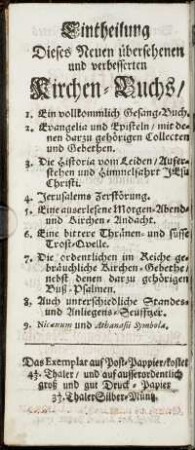 Eintheilung
Dieses Neuen übersehenen
und verbesserten
Kirchen-Buchs/
1. Ein vollkommlich Gesang-Buch.
2. Evangelia und Episteln/ mit de-
nen darzu gehörigen Collecten
und Gebethen.
3. Die Historia vom Leiden/ Aufer-
stehen und Himmelfahrt JEsu
Christi.
4. Jerusalems Zerstörung.
5. Eine auserlesene Morgen-Abend-
und Kirchen-Andacht.
6. Eine bittere Thränen- und süsse
Trost-Qvelle.
7. Die ordentlichen im Reiche ge-
bräuchliche Kirchen-Gebethe/
nebst denen darzu gehörigen
Buß-Psalmen.
8. Auch unterschiedliche Standes-
und Anliegens-Seufftzer.
9. Nicænum und Athanasii Symbola.
Das Exemplar auf Post-Pappier/kostet
Thaler/ und auf ausserordentlich
groß und gut Druck-Papier
Thaler Silber-Müntz.